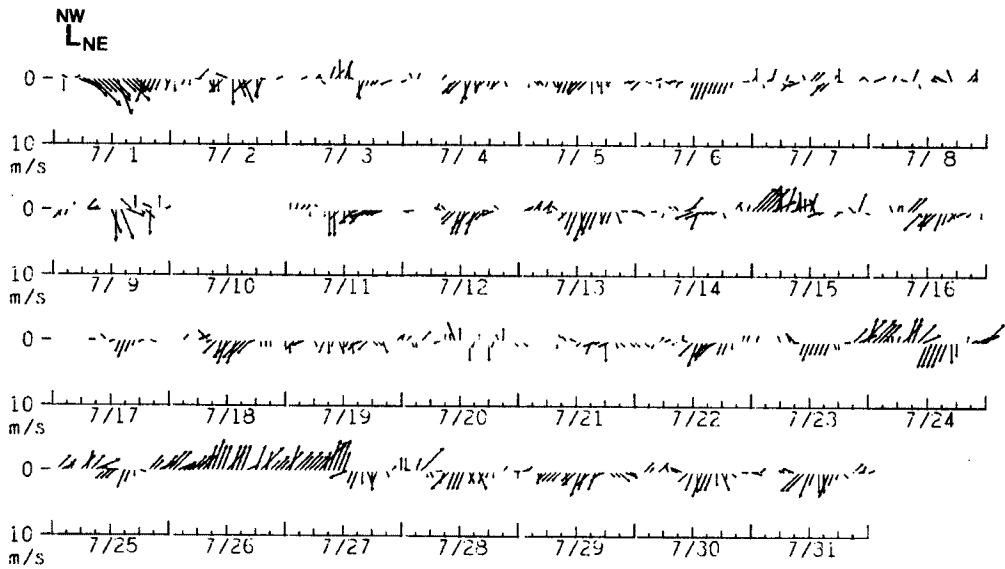 NW
NE
0
10
m/s
7/ 1 7/ 2 7/ 3 7/ 4 7/ 5 7/ 6 7/ 7 7/ 8
0
10
m/s
7/ 9 7/10 7/11 7/12 7/13 7/14 7/15 7/16
0
10
m/s
7/17 7/18 7/19 7/20 7/21 7/22 7/23 7/24
0
10
m/s
7/25 7/26 7/27 7/28 7/29 7/30 7/31